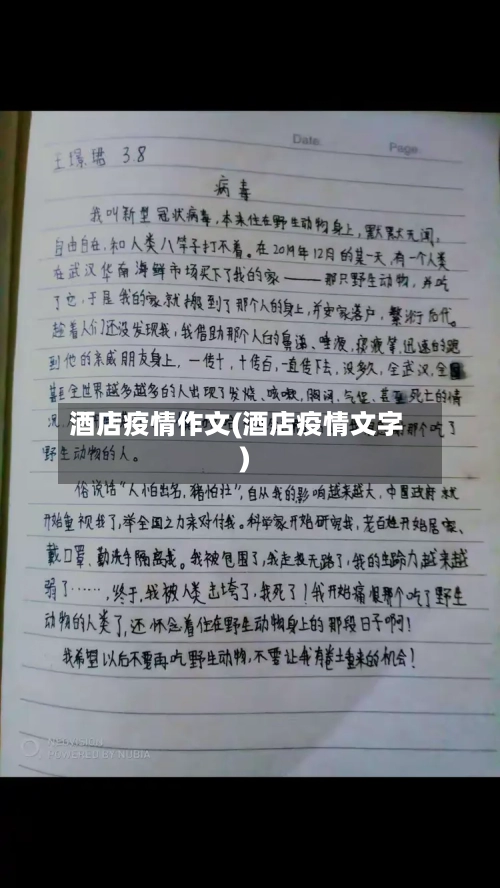 Date.
Page.
王璟珺 3.8
病毒
我叫新型冠状病毒,本来住在野生动物身上,默默无闻,
自由自在,和人类八竿子打不着。在2019年12月的某一天,有一个人类
在武汉华南海鲜市场买下了我的家——那只野生动物,并吃
了它,于是我的家就搬到了那个人的身上,并安家落户,繁衍后代。
趁着人们还没发现我,我借助那个人的鼻涕、唾液、迅速的跑
到他的亲戚朋友身上,一传十,十传百,一直传下去,没多久,全武汉,全国
甚至全世界越多越多的人出现了发烧、咳嗽,胸闷,气促、甚至死亡的情
酒店疫情作文(酒店疫情文字
)
那个吃了
野生动物的人。
俗说话“人怕出名,猪怕壮”,自从我的影响越来越大,中国政府就
开始重视我了,举全国之力来对付我。科学家开始研究我,老百姓开始居家、
戴口罩、勤洗手隔离我。我被包围了,我走投无路了,我的生命力越来越
弱了……,终于,我被人类击垮了,我死了!我开始痛恨那个吃了野生
动物的人类了,还怀念着住在野生动物身上的那段日子啊!
我希望以后不要再吃野生动物,不要让我有卷土重来的机会!
POWERED BY NUBIA